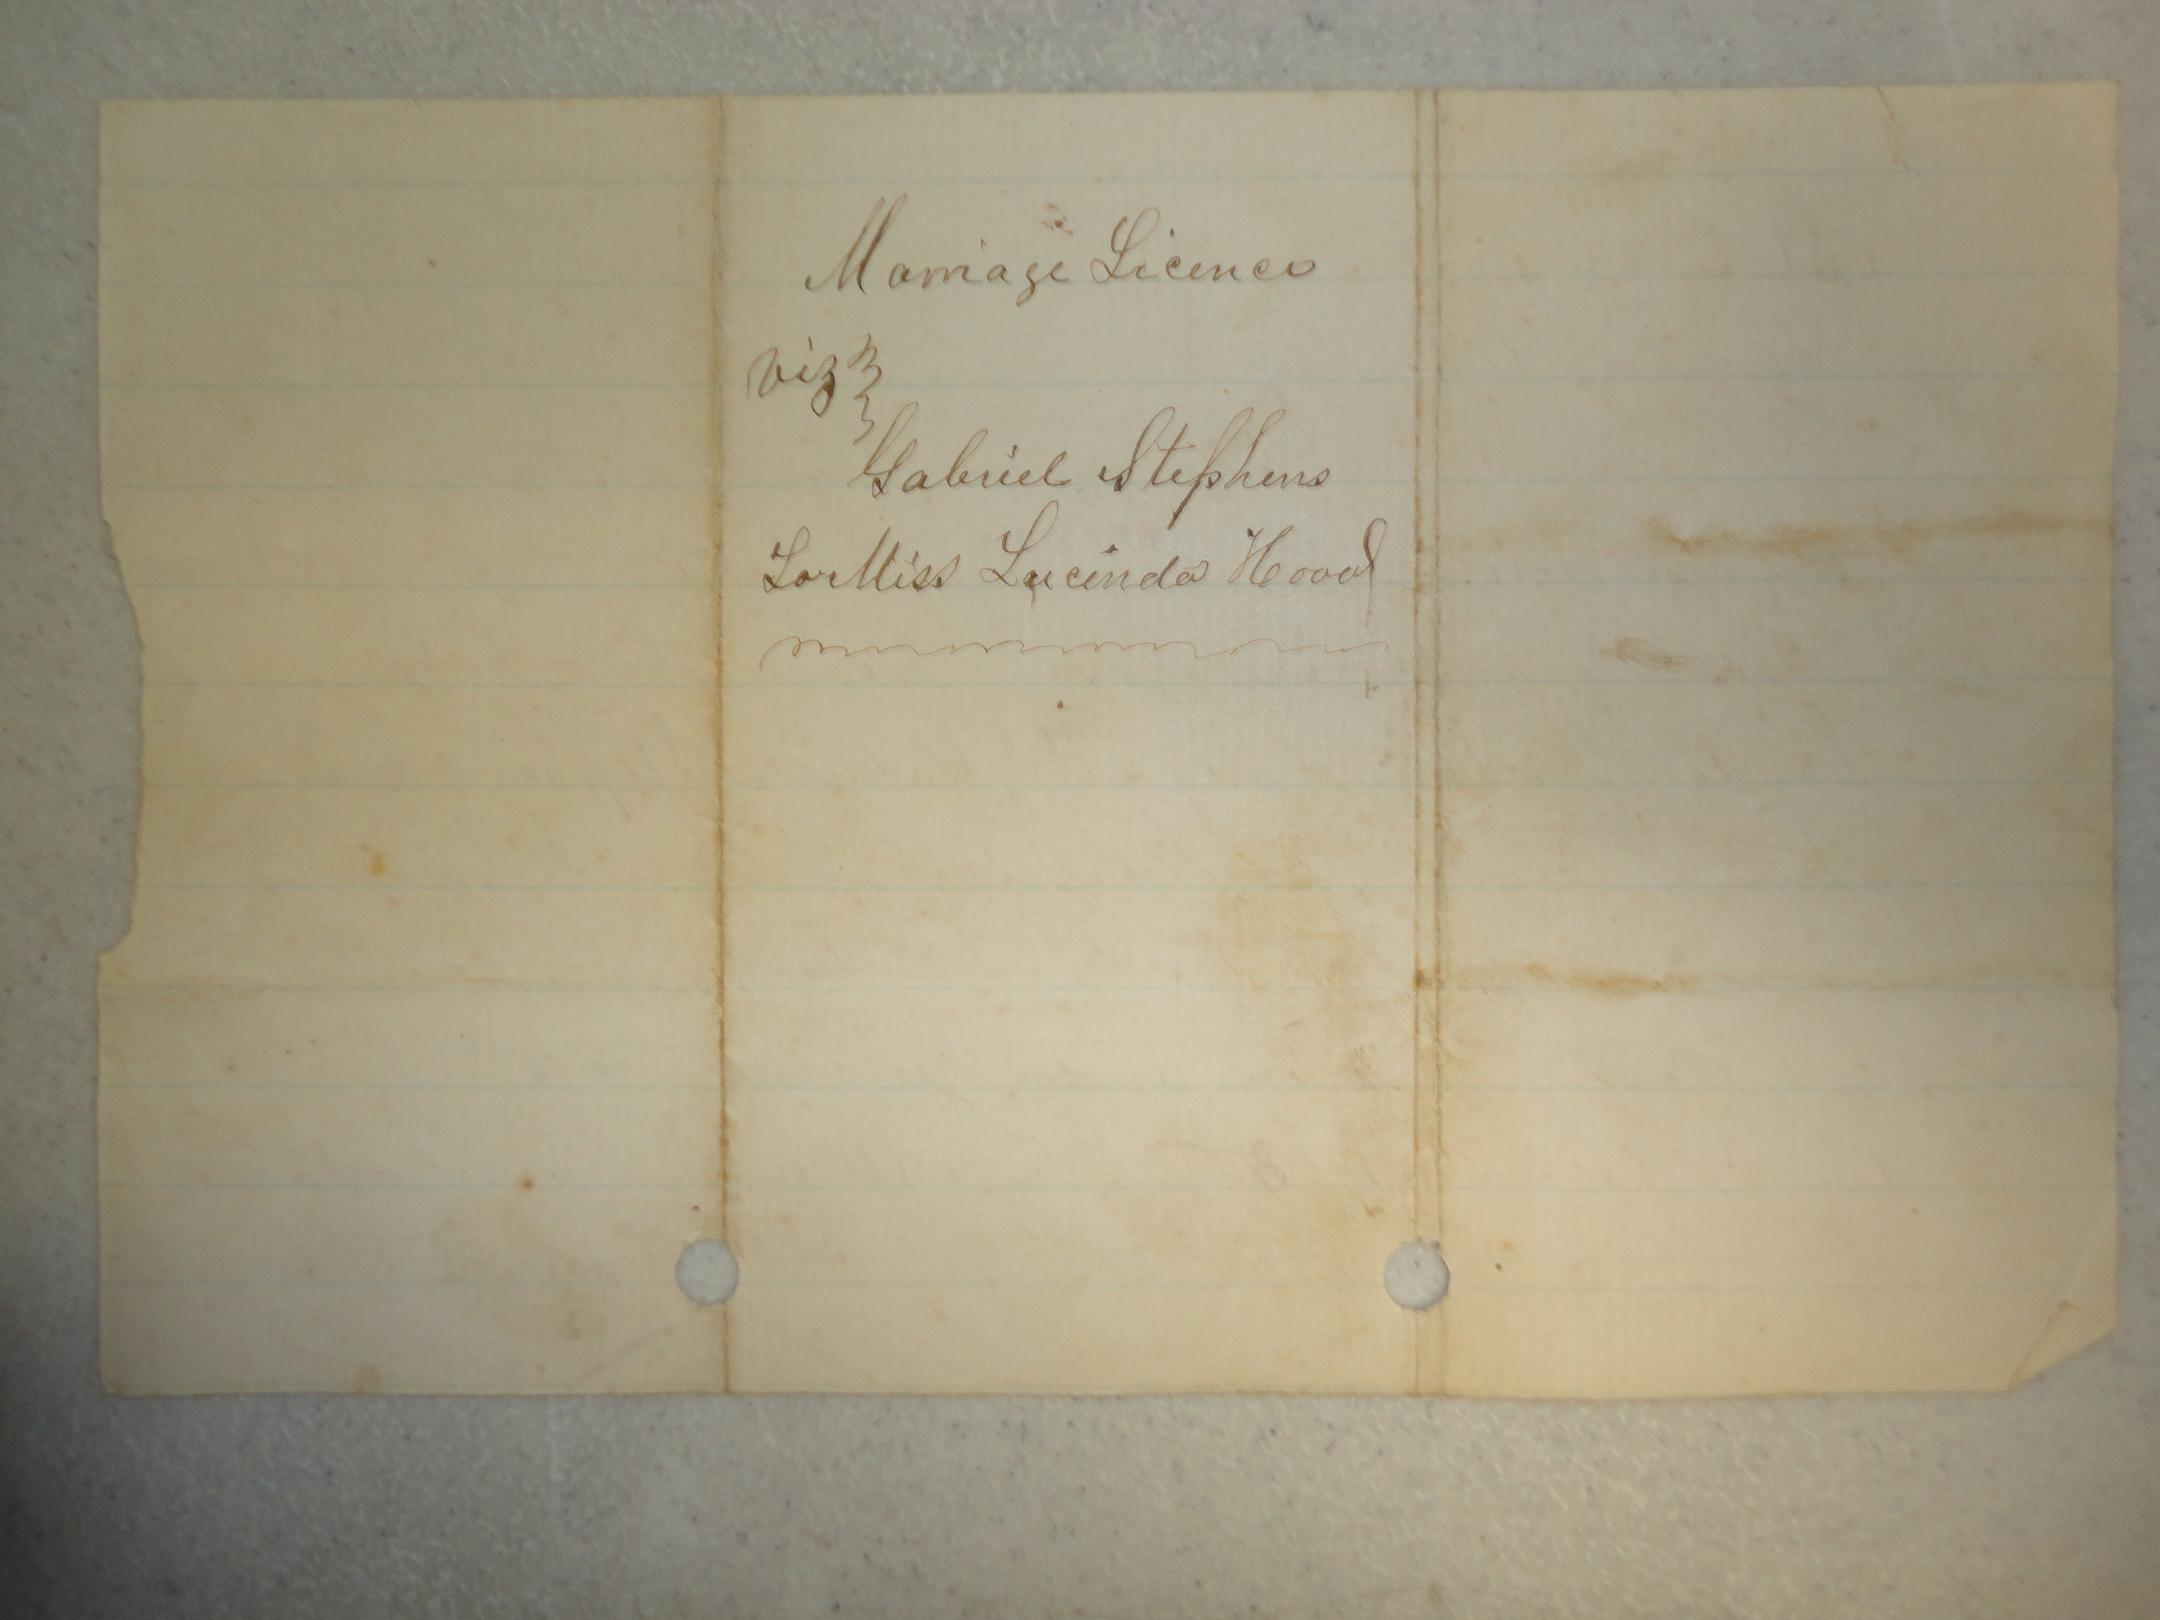 Marriage Licence
viz
Gabriel Stephens
To Miss Lucinda Hood